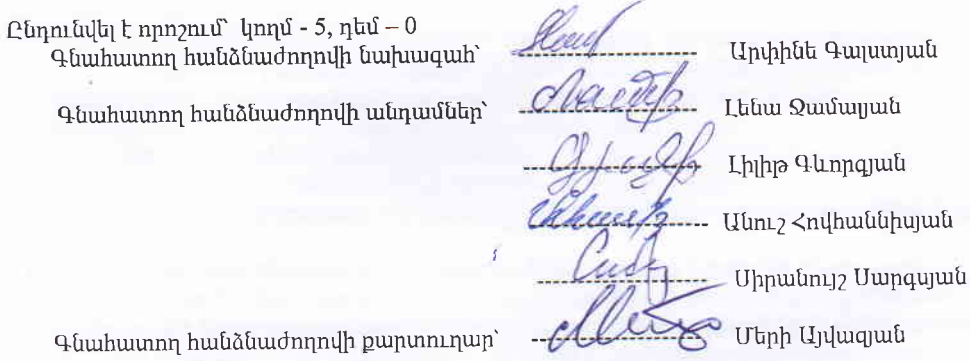 Ընդունվել է որոշում՝ կողմ - 5, դեմ – 0
Գնահատող հանձնաժողովի նախագահ՝ Արփինե Գալստյան
Գնահատող հանձնաժողովի անդամներ՝ Լենա Ջամալյան
Լիլիթ Գևորգյան
Անուշ Հովհաննիսյան
Սիրանույշ Սարգսյան
Գնահատող հանձնաժողովի քարտուղար՝ Մերի Այվազյան